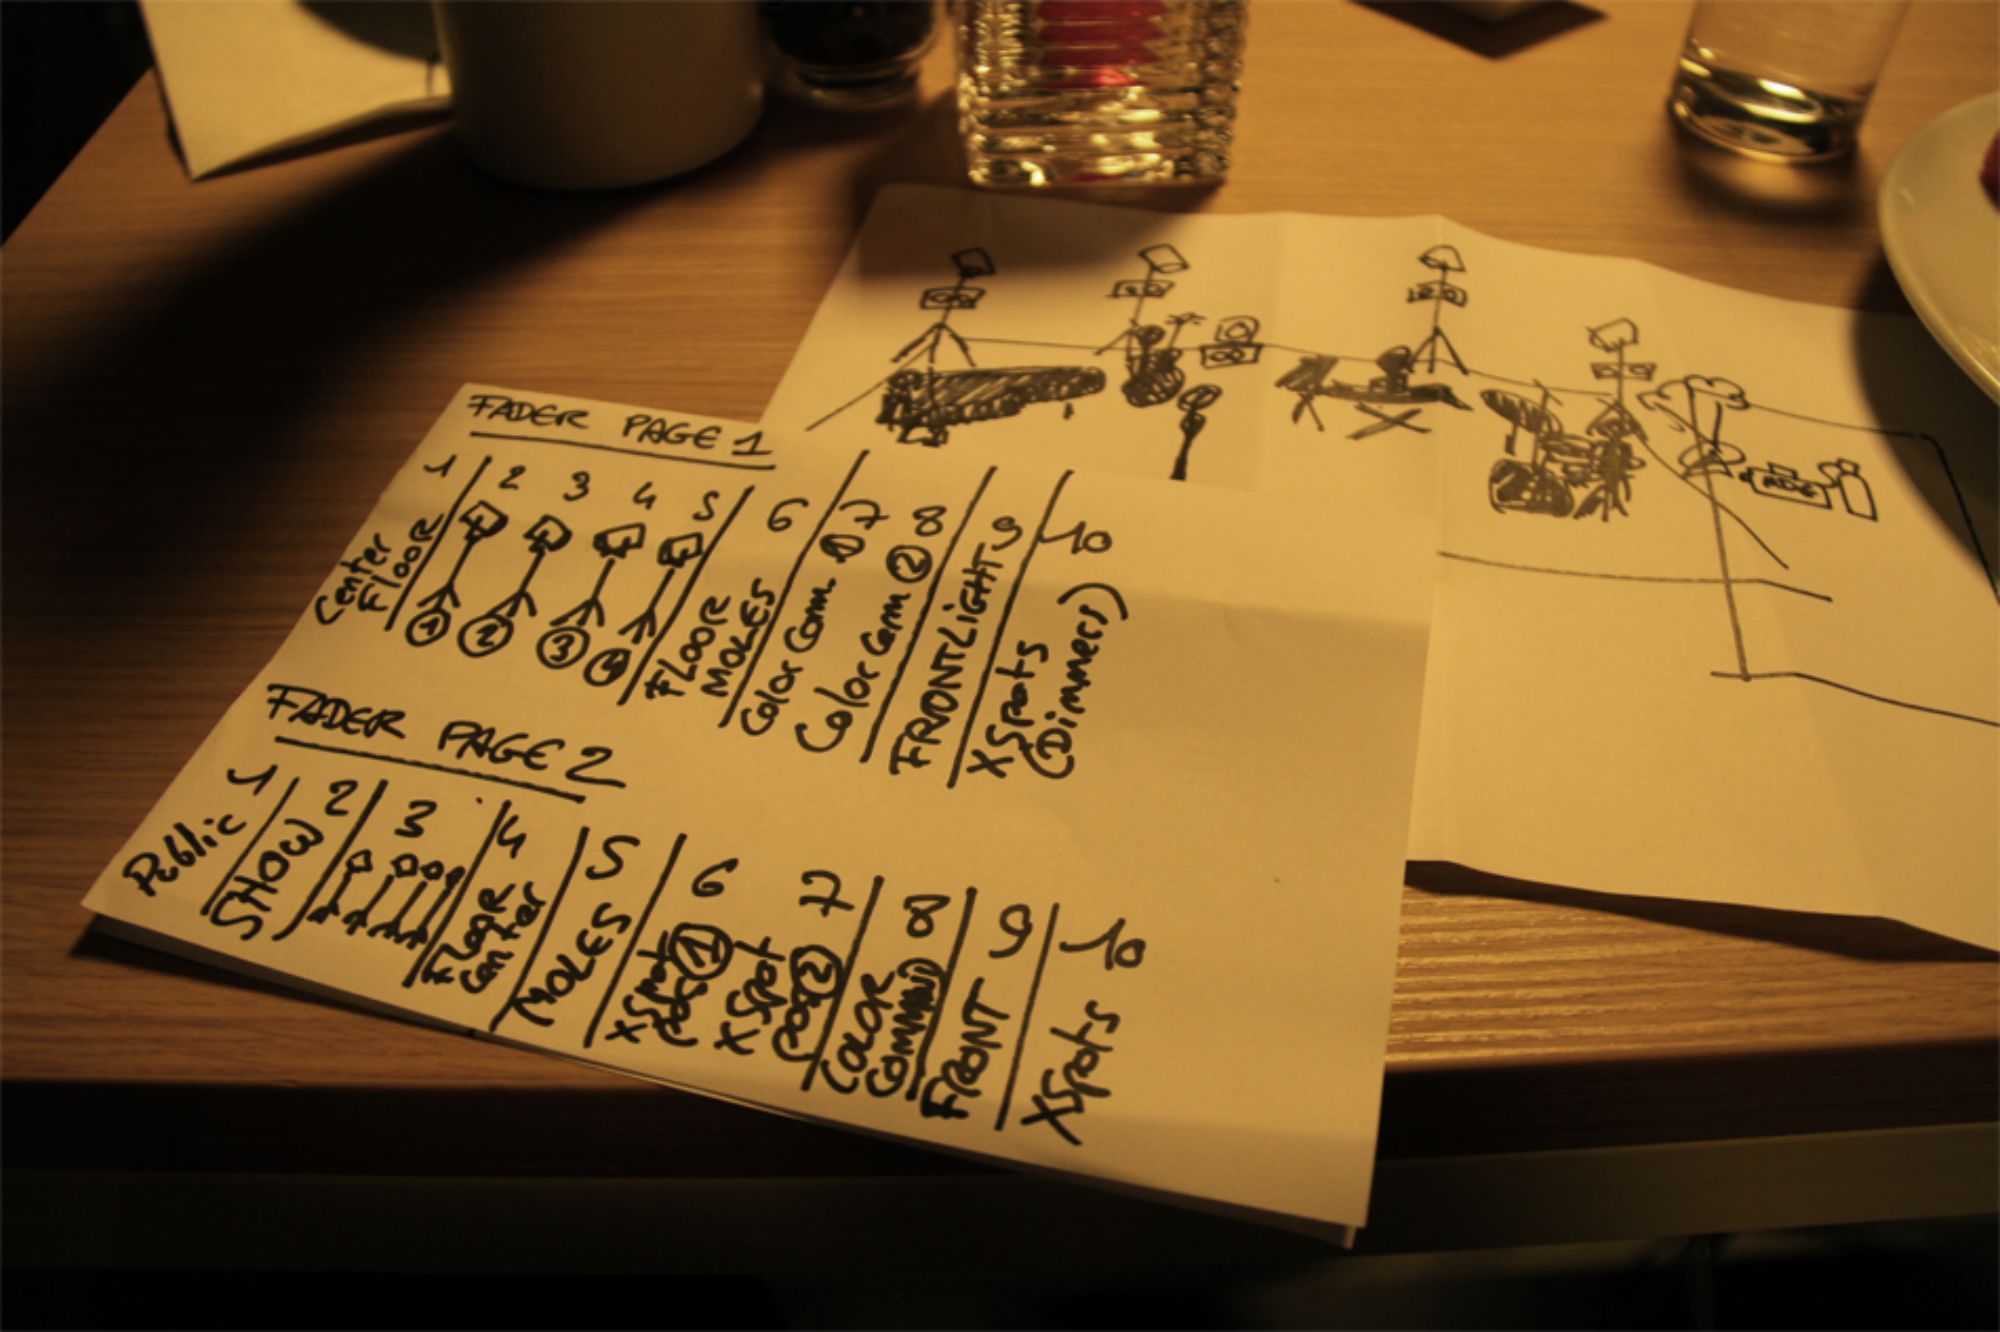 FADER PAGE 1
1 2 3 4 5 6 7 8 9 10
Center FlooR
1 2 3 4
FLOOR MOLES
Color Com. 1
Color Com 2
FRONTLIGHT
XSpots (Dimmers)
FADER PAGE 2
1 2 3 4 5 6 7 8 9 10
Public
SHOW
FlooR Center
MOLES
XSpot pos 1
XSpot pos 2
COLOR
FRONT
XSpots